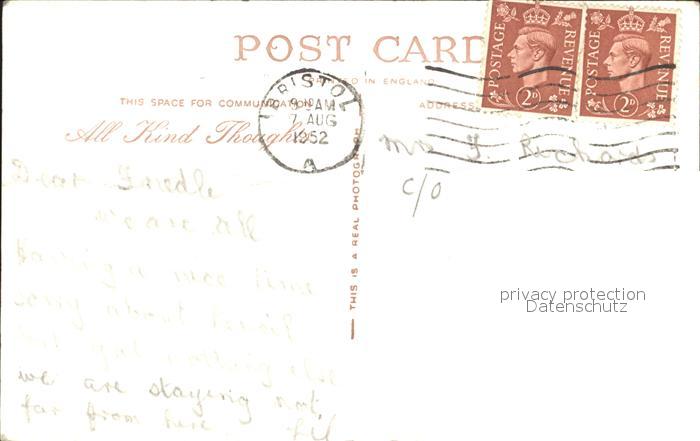 POST CARD
PRINTED IN ENGLAND
THIS SPACE FOR COMMUNICATION
ADDRESS
All Kind Thoughts
BRISTOL
9 AM
7 AUG
1952
A
POSTAGE REVENUE
2D
POSTAGE REVENUE
2D
THIS IS A REAL PHOTOGRAPH
Mr J. Richards
C/O
Dear Friedle
We are all
having a nice time
sorry about pencil
but got nothing else
we are staying not
far from here. Lil
privacy protection
Datenschutz